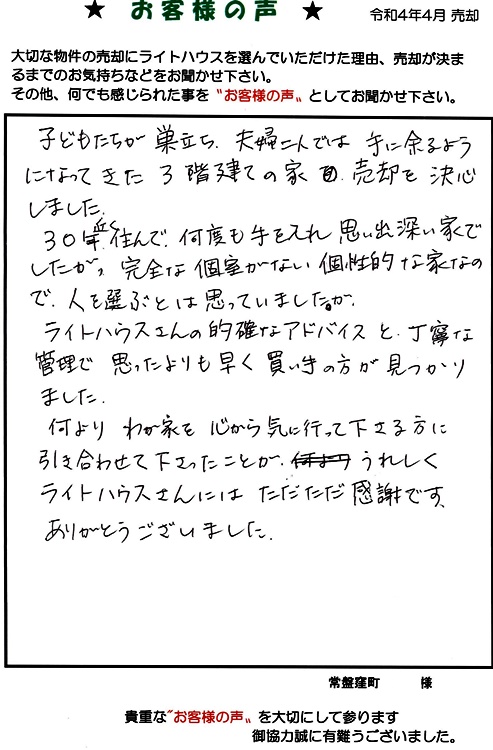 ★ お客様の声 ★ 令和4年4月 売却
大切な物件の売却にライトハウスを選んでいただけた理由、売却が決ま
るまでのお気持ちなどをお聞かせ下さい。
その他、何でも感じられた事を〝お客様の声〟としてお聞かせ下さい。
子どもたちが 巣立ち、夫婦二人では 手に余るよう
になって きた 3階建ての家 売却を 決心
しました。
30年近く住んで、何度も手を入れ 思い出深い家で
したが、完全な個室がない 個性的な家なの
で、人を選ぶとは思っていましたが、
ライトハウスさんの的確なアドバイスと、丁寧な
管理で 思ったよりも早く 買い手の方が見つかり
ました。
何より わが家を 心から気に行って下さる方に
引き合わせて下さったことが、何より うれしく
ライトハウスさんには ただただ 感謝です。
ありがとうございました。
常盤窪町 様
貴重な〝お客様の声〟を大切にして参ります
御協力誠に有難うございました。